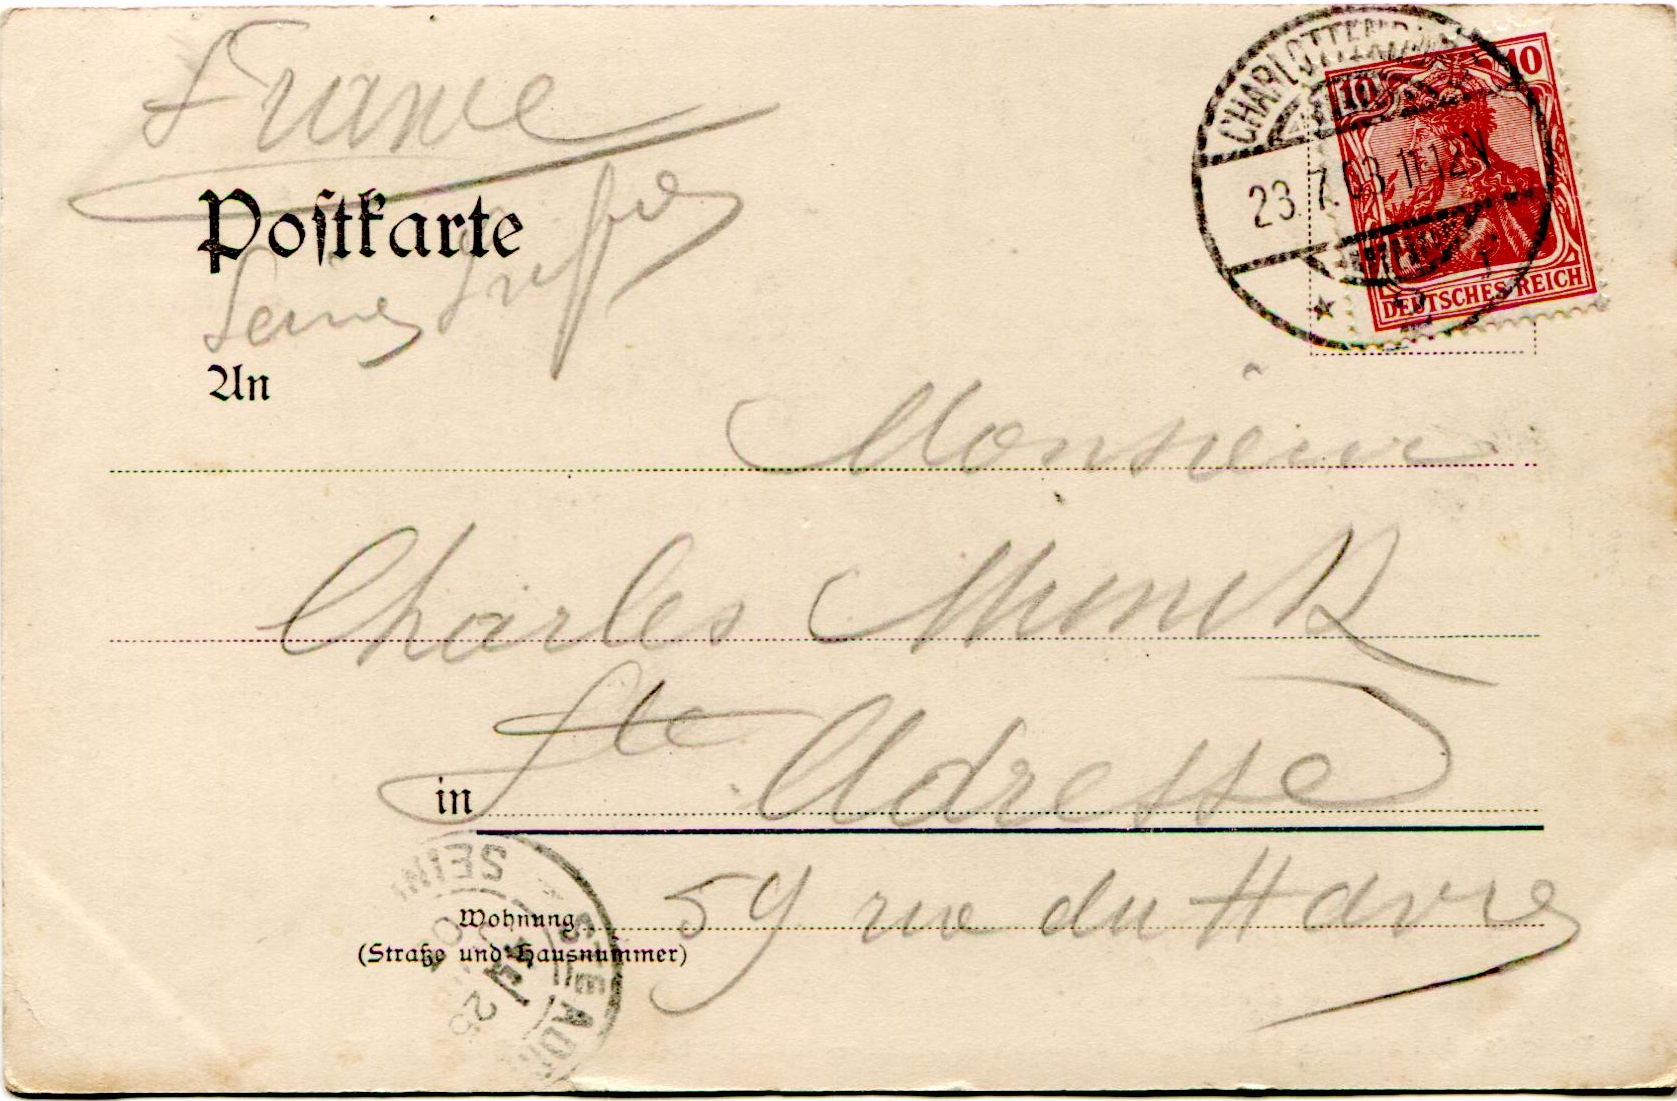 France
Postkarte
Seine Infre
An
CHARLOTTENBURG
23.7.03 11-12V
10
10
DEUTSCHES REICH
Monsieur
Charles
in Ste Adresse
Wohnung
(Straße und Hausnummer)
59 rue du Havre
STE ADR
SEINE
25